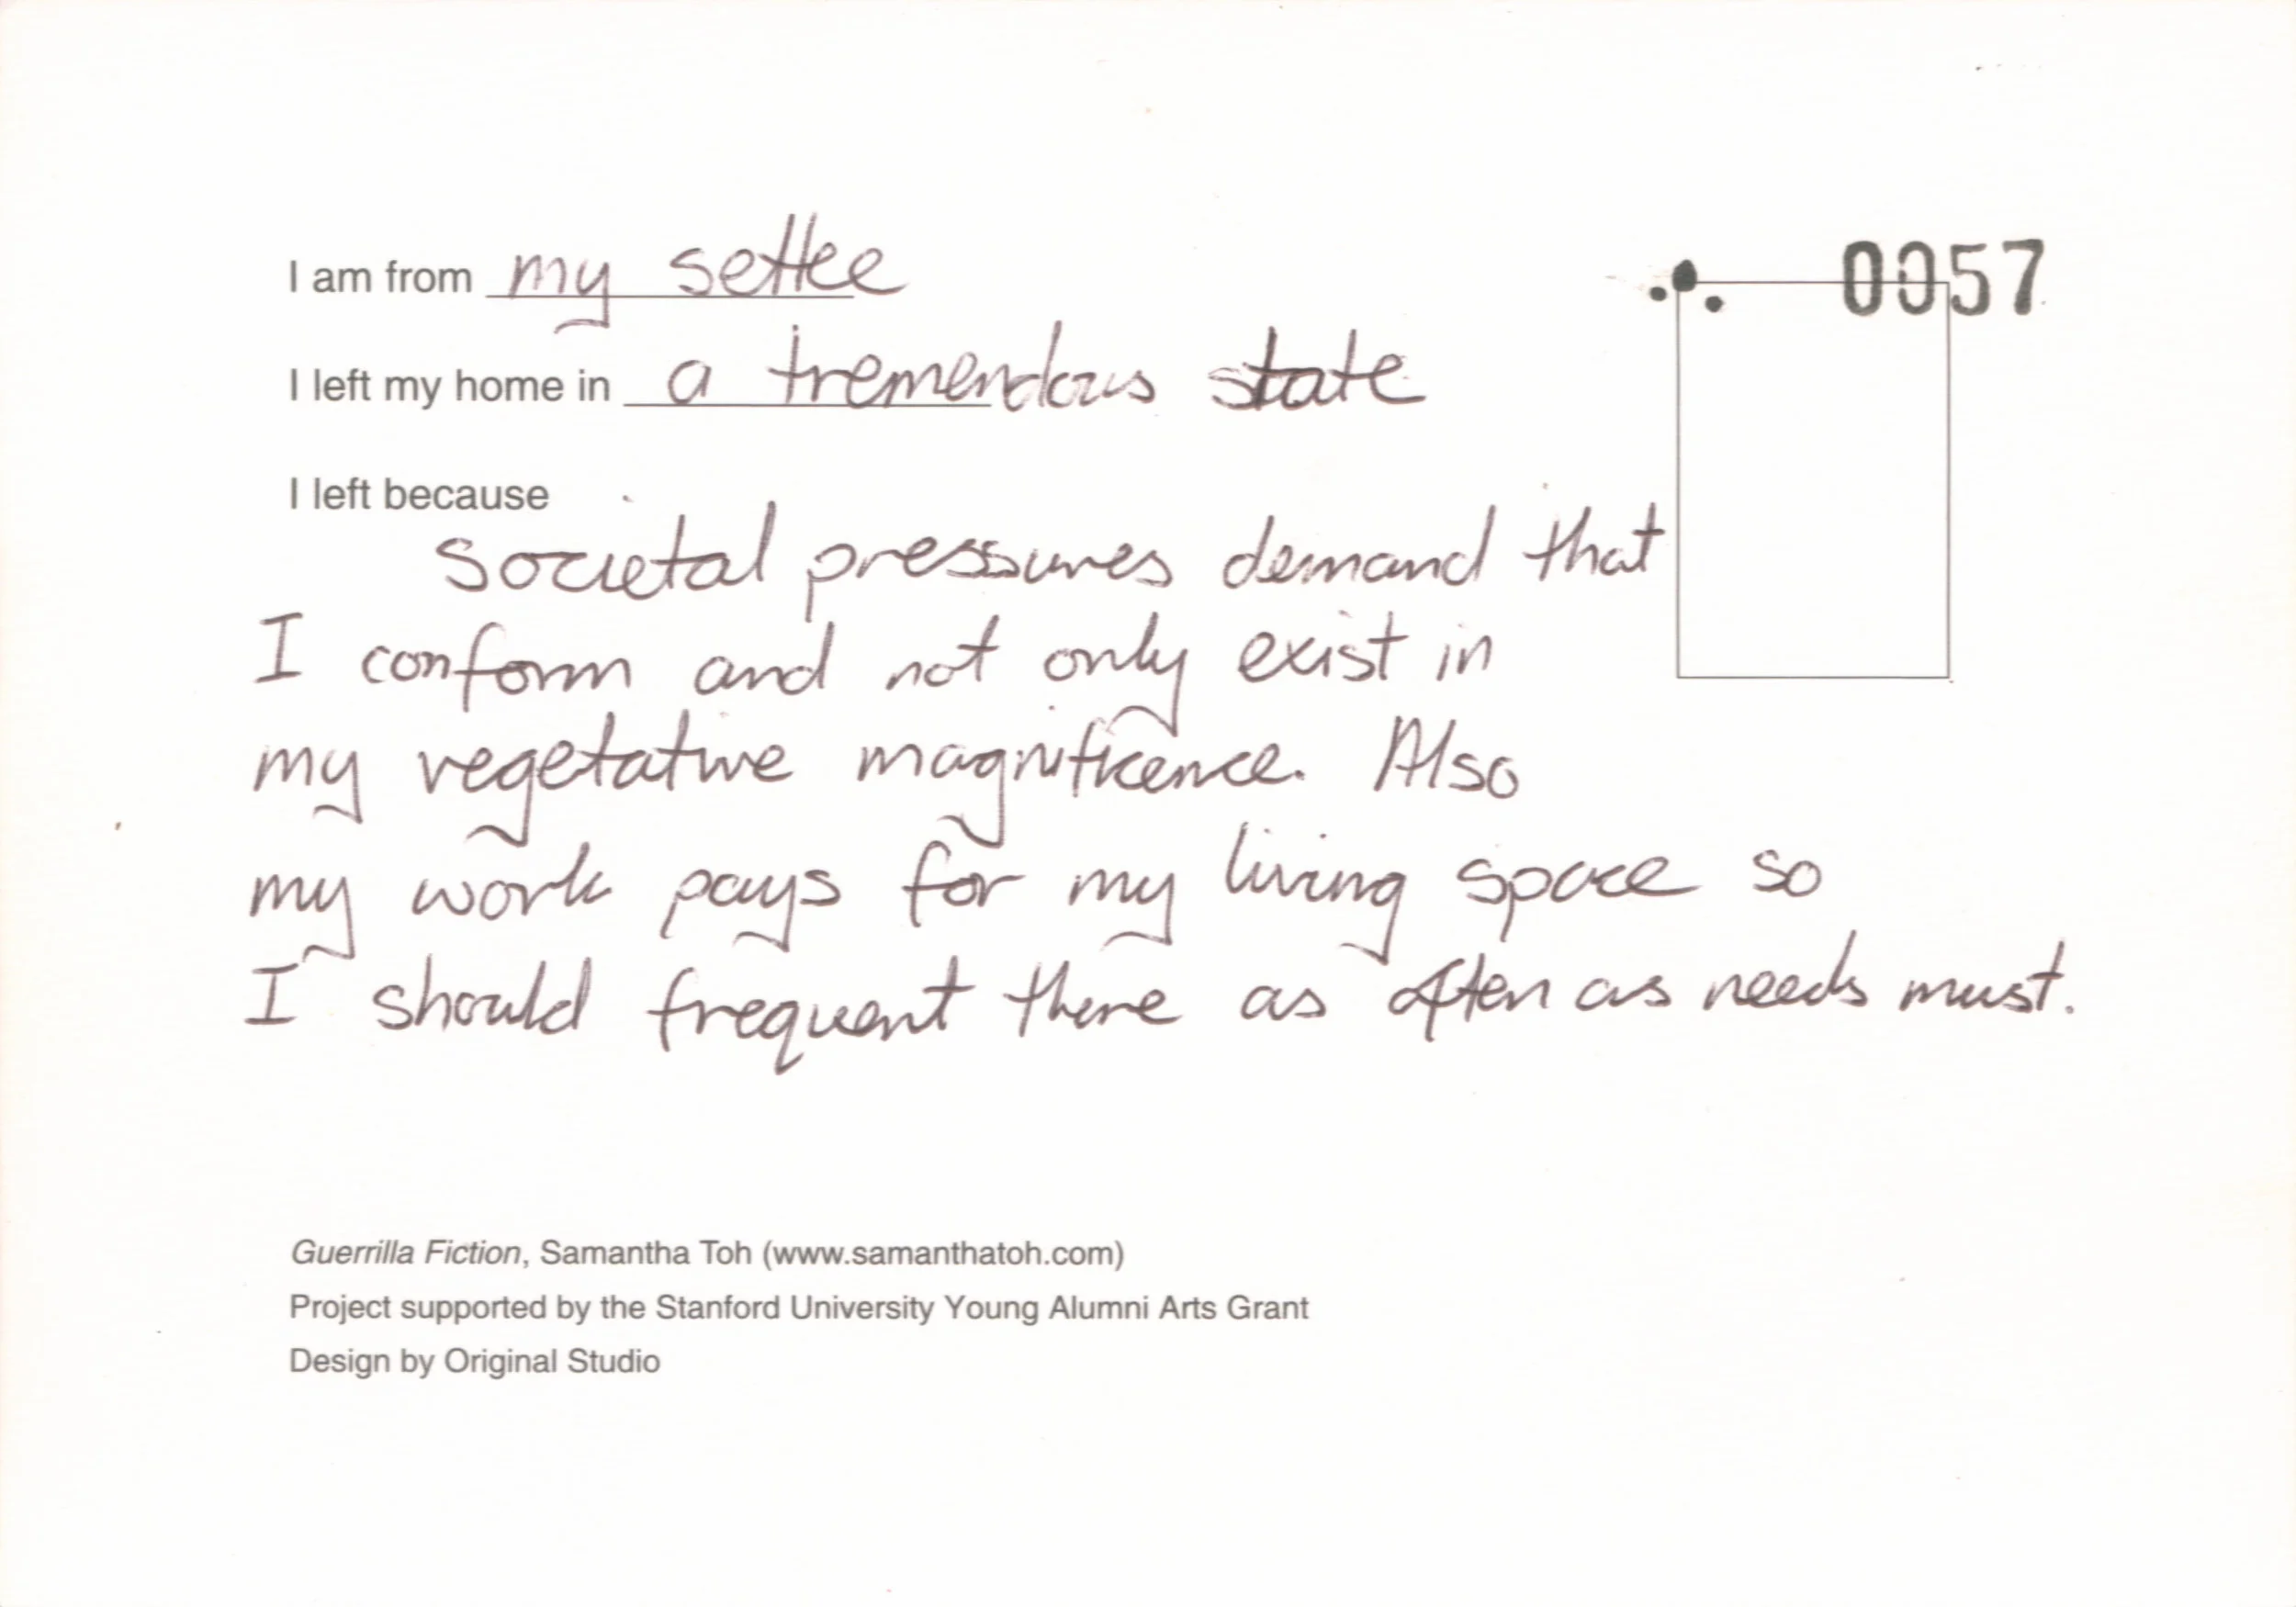 I am from my settee
0057
I left my home in a tremendous state
I left because
Societal pressures demand that
I conform and not only exist in
my vegetative magnificence. Also
my work pays for my living space so
I should frequent there as often as needs must.
Guerrilla Fiction, Samantha Toh (www.samanthatoh.com)
Project supported by the Stanford University Young Alumni Arts Grant
Design by Original Studio